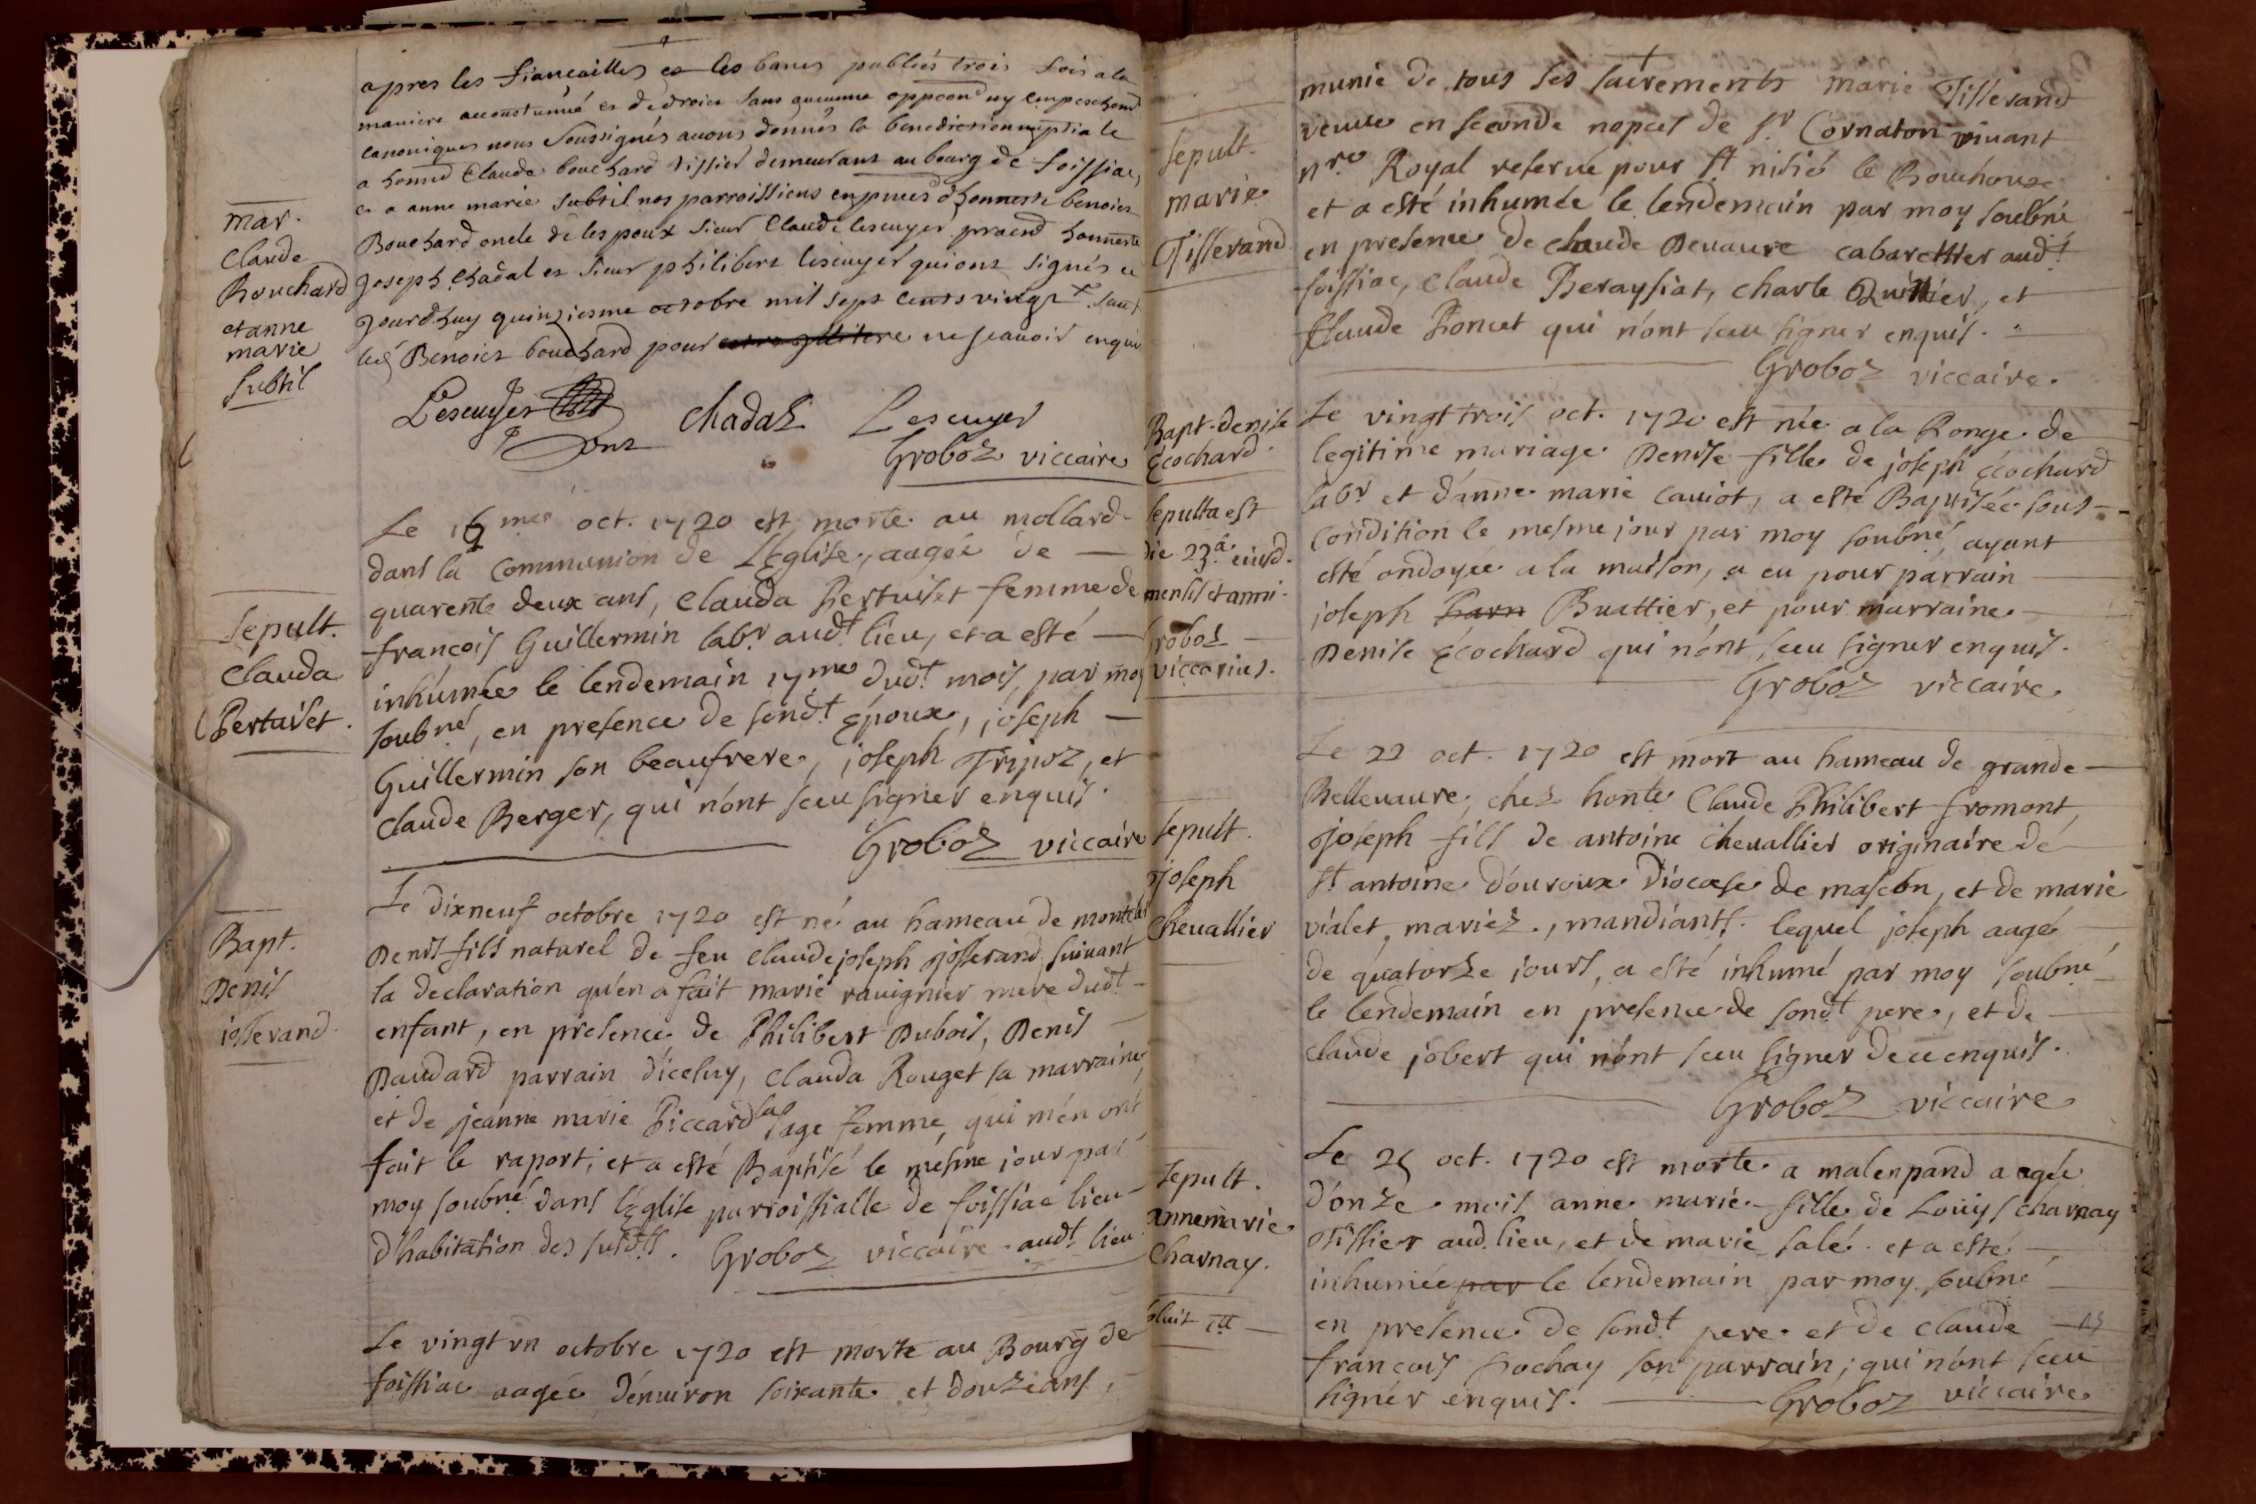 apres les fiancailles et les bancs publiés trois fois a la
maniere accoustumé et de droict sans aucunne oppoond ny empeschemt
canoniques nous soussignés avons donnés la benediction nuptiale
a honnd Claude bouchard tissier demeurant au bourg de foissiac,
et a anne marie subtil nos parroissiens en pnces d'honneste benoict
Bouchard oncle de lespoux sieur Claude lescuyer praend honneste
Joseph Chadal et sieur philibert lescuyer qui ont signés ce
Jourdhuy quinziesme octobre mil sept cents vingt sauf
led Benoict bouchard pour ne scavoir enquis
mar.
Claude
Bouchard
et anne
marie
subtil
Lescuyer
chadal
Lescuyer
Groboz viccaire
Le 16me oct. 1720 est morte au mollard
dans la Communion de L'Eglise, aagée de
quarente deux ans, Clauda Pertuiset femme de
françois Guillermin labr audt lieu, et a esté
inhumée le lendemain 17me dudt mois, par moy
soubné, en presence de sondt Epoux, joseph
Guillermin son beaufrere, joseph Tripoz, et
Claude Berger, qui n'ont sceu signer enquis.
Groboz viccaire
Sepult.
Clauda
Pertuiset.
Le dixneuf octobre 1720 est né au hameau de
Denis fils naturel de feu Claude joseph josserand suivant
la declaration qu'en a fait marie ravignier mere dudt
enfant, en presence de Philibert Dubois, Denis
Daudard parrain d'iceluy, Clauda Rouget sa marraine,
et de jeanne marie Piccard sage femme, qui m'en ont
fait le raport; et a esté Baptisé le mesme jour par
moy soubné dans l'Eglise parroissialle de foissiac lieu
d'habitation des susdtts. Groboz viccaire audt lieu
Bapt.
Denis
josserand
Le vingt un octobre 1720 est morte au Bourg de
foissiac aagée d'environ soixante et douze ans,
munie de tous ses sacrements marie Tisserand
veuve en seconde nopces de sr Cornaton vivant
nre Royal reservé pour st nisié le Bouchoux
et a esté inhumée le lendemain par moy soubné
en presence de claude Devaure cabarettier audt
foissiac, claude Beraysiat, charle et
Claude Poncet qui n'ont sceu signer enquis.
Groboz viccaire.
Sepult.
marie
Tisserand
Le vingt trois oct. 1720 est née a la Ronge de
legitime mariage Denise fille de joseph Ecochard
labr et d'anne marie caviot, a esté Baptisée sous
condition le mesme jour par moy soubné, ayant
esté ondoyée a la maison, a eu pour parrain
joseph Buattier, et pour marraine
Denise Ecochard qui n'ont sceu signer enquis.
Groboz viccaire
Bapt. Denise
Ecochard.
sepulta est
die 23a. eiusd.
mensis et anni.
Groboz
viccarius.
Le 22 oct. 1720 est mort au hameau de grande
Bellevaure, chez honte Claude Philibert fromont,
joseph fils de antoine Chevallier originaire de
st antoine d'ouroux Diocese de mascon, et de marie
vialet, mariez, mandiants. lequel joseph aagé
de quatorze jours, a esté inhumé par moy soubné
le lendemain en presence de sondt pere, et de
claude jobert qui n'ont sceu signer de ce enquis.
Groboz viccaire
Sepult.
joseph
Chevallier
Le 25 oct. 1720 est morte a malenpand aagée
d'onze mois anne marie fille de Louys charnay
Tissier aud. lieu, et de marie salé. et a esté
inhumée par le lendemain par moy soubné
en presence de sondt pere et de claude
françois Pochay son parrain; qui n'ont sceu
signer enquis. Groboz viccaire
Sepult.
anne marie
Charnay.